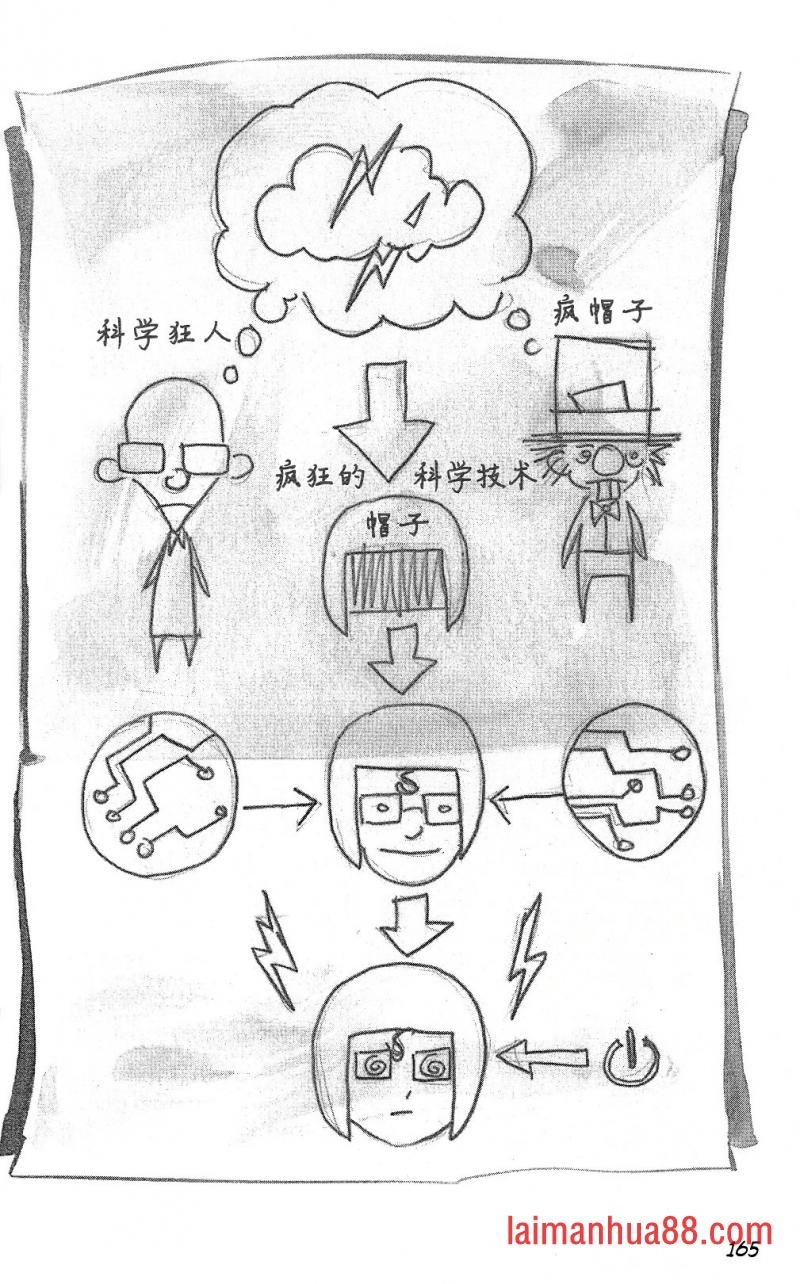 疯帽子
科学狂人
疯狂的 科学技术
帽子
laimanhua88.com
165